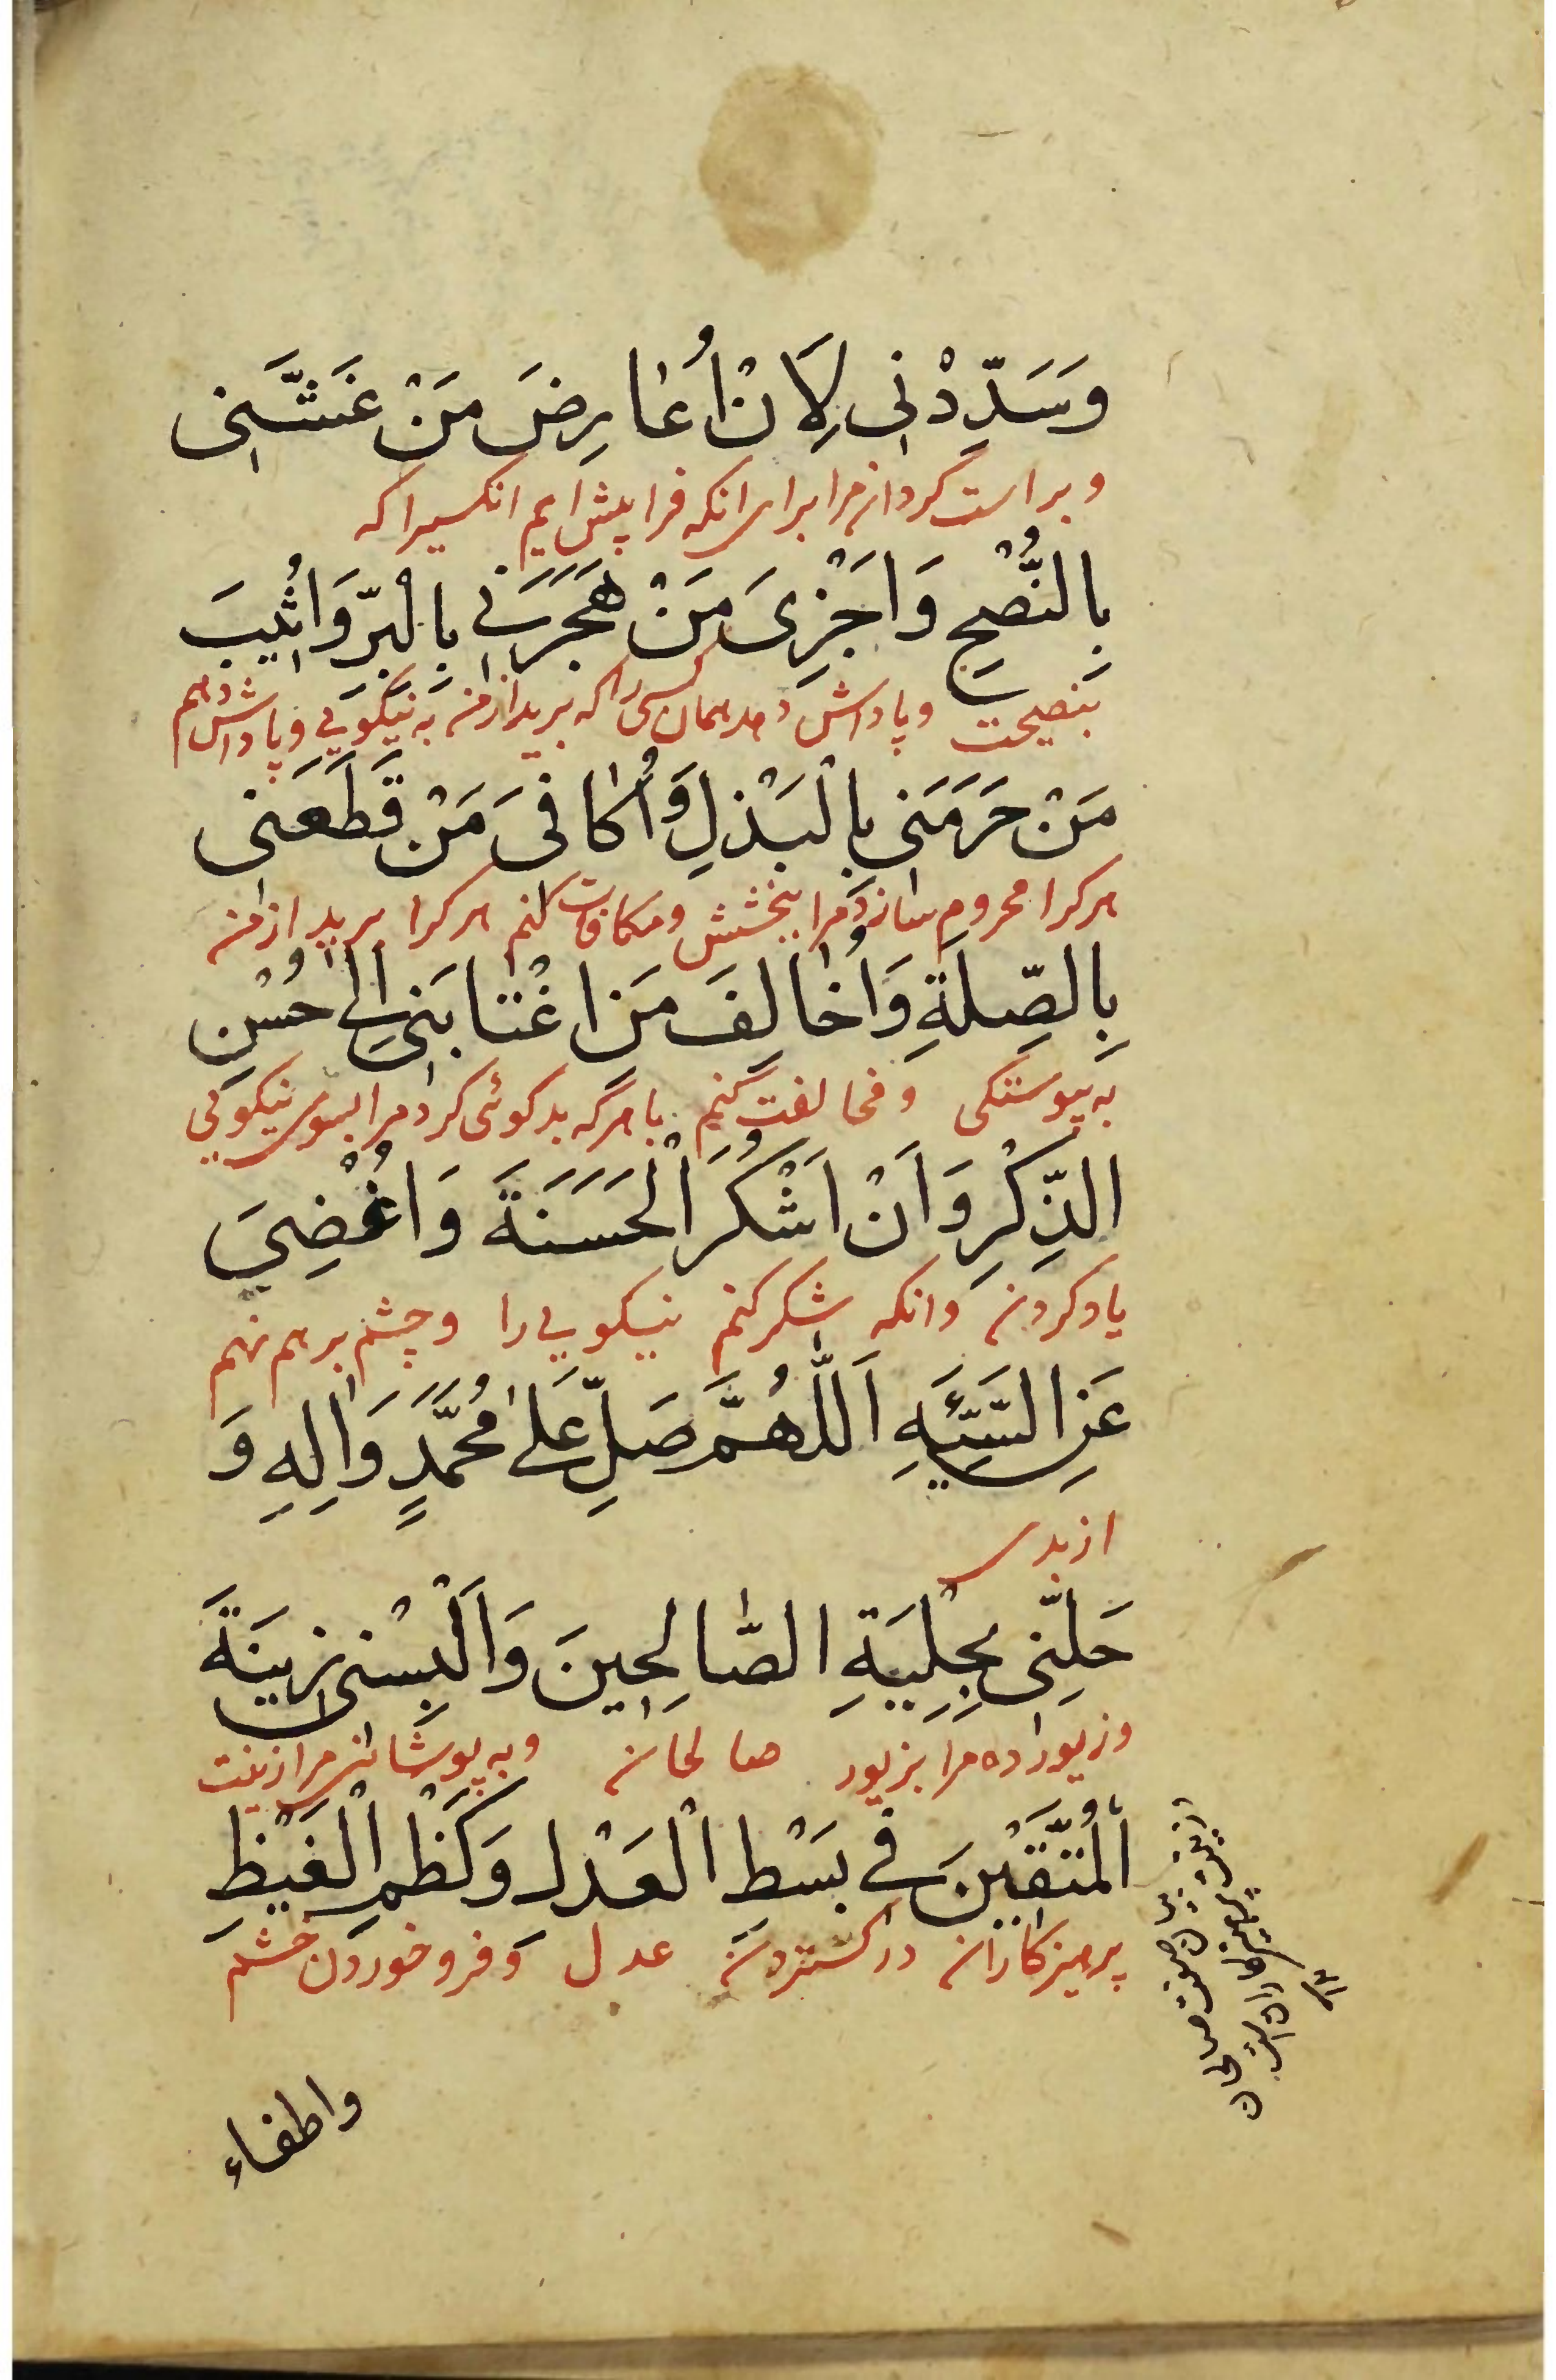 وَسَدِّدْنِی لِاَنْ اُعَارِضَ مَنْ غَشَّنِی
و براست گردان مرا برای انکه فرا پیش ایم انکسیرا که
بِالنُّصْحِ وَاَجْزِیَ مَنْ هَجَرَنِی بِالْبِرِّ وَاُثِیبَ
بنصیحت و پاداش دهم همان کسی را که برید از من به نیکویی و پاداش دهم
مَنْ حَرَمَنِی بِالْبَذْلِ وَاُكَافِیَ مَنْ قَطَعَنِی
هر کرا محروم سازد مرا ببخشش و مکافات کنم هر کرا برید از من
بِالصِّلَةِ وَاُخَالِفَ مَنِ اغْتَابَنِی اِلٰی حُسْنِ
به پیوستکی و مخالفت کنم با هرکه بدکوئی کرد مرا بسوی نیکویی
الذِّكْرِ وَاَنْ اَشْكُرَ الْحَسَنَةَ وَاُغْضِیَ
یاد کردن وانکه شکر کنم نیکویی را و چشم بر هم نهم
عَنِ السَّیِّئَهِ اَللّٰهُمَّ صَلِّ عَلٰی مُحَمَّدٍ وَاٰلِهِ وَ
از بدی
حَلِّنِی بِحِلْیَةِ الصَّالِحِینَ وَاَلْبِسْنِی زِینَةَ
و زیور ده مرا بزیور صالحان و به پوشان مرا زینت
اَلْمُتَّقِیْنَ فِی بَسْطِ الْعَدْلِ وَكَظْمِ الْغَیْظِ
پرهیزکاران در کستردن عدل و فرو خوردن خشم
صفت صالحان
واطفاء